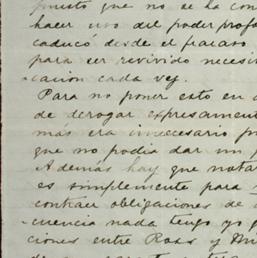 puesto que no se ha con
hacer uso del poder prof
caducó desde el fracaso
para ser revivido necesi
cación cada vez.
Para no poner esto en
de derogar expresamen
más era innecesario p
que no podia dar un
Además hay que notar
es simplemente para
contraer obligaciones de
cuencia nada tengo yo q
ciones entre Ross y